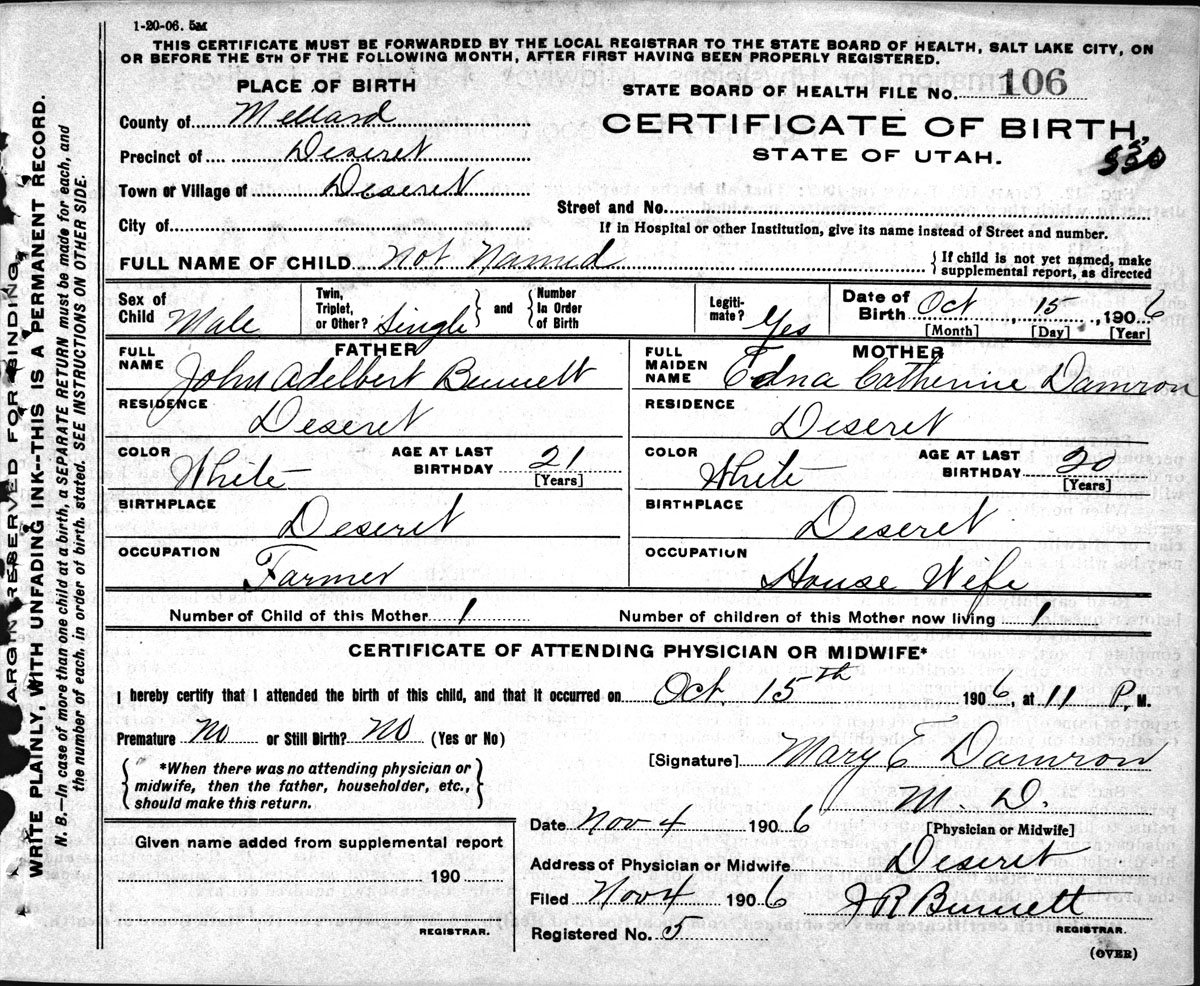 1-20-06. 5M
THIS CERTIFICATE MUST BE FORWARDED BY THE LOCAL REGISTRAR TO THE STATE BOARD OF HEALTH, SALT LAKE CITY, ON
OR BEFORE THE 5TH OF THE FOLLOWING MONTH, AFTER FIRST HAVING BEEN PROPERLY REGISTERED.
PLACE OF BIRTH
STATE BOARD OF HEALTH FILE No. 106
County of Mellard
CERTIFICATE OF BIRTH,
Precinct of Deseret
STATE OF UTAH.
Town or Village of Deseret
Street and No.
City of
If in Hospital or other Institution, give its name instead of Street and number.
FULL NAME OF CHILD Not Named { If child is not yet named, make
supplemental report, as directed
Sex of Child Male
Twin, Triplet, or Other? Single } and { Number In Order of Birth
Legiti-mate? Yes
Date of Birth Oct 15, 1906
[Month] [Day] [Year]
FATHER
FULL NAME John Adelbert Bennett
MOTHER
FULL MAIDEN NAME Edna Catherine Damron
RESIDENCE Deseret
RESIDENCE Deseret
COLOR White AGE AT LAST BIRTHDAY 21 [Years]
COLOR White AGE AT LAST BIRTHDAY 20 [Years]
BIRTHPLACE Deseret
BIRTHPLACE Deseret
OCCUPATION Farmer
OCCUPATION House Wife
Number of Child of this Mother 1
Number of children of this Mother now living 1
CERTIFICATE OF ATTENDING PHYSICIAN OR MIDWIFE*
I hereby certify that I attended the birth of this child, and that it occurred on Oct. 15th 1906, at 11 P. M.
Premature No or Still Birth? No (Yes or No)
{ *When there was no attending physician or
midwife, then the father, householder, etc.,
should make this return. }
[Signature] Mary E Damron
M. D.
[Physician or Midwife]
Date Nov 4 1906
Address of Physician or Midwife Deseret
Filed Nov 4 1906 J R Bennett
REGISTRAR.
Registered No. 5
Given name added from supplemental report
190
REGISTRAR.
(OVER)
ARGIN RESERVED FOR BINDING.
WRITE PLAINLY, WITH UNFADING INK--THIS IS A PERMANENT RECORD.
N. B.—In case of more than one child at a birth, a SEPARATE RETURN must be made for each, and
the number of each, in order of birth, stated. SEE INSTRUCTIONS ON OTHER SIDE.